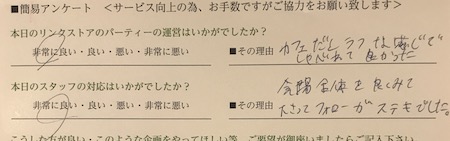 ■簡易アンケート ＜サービス向上の為、お手数ですがご協力をお願い致します＞
本日のリンクストアのパーティーの運営はいかがでしたか？
非常に良い・良い・悪い・非常に悪い ■その理由 カフェだしラフな感じで
しゃべれて良かった
本日のスタッフの対応はいかがでしたか？
非常に良い・良い・悪い・非常に悪い ■その理由 会場全体を良くみて
フォローがステキでした。
こうした方が良い・このような企画をやってほしい等、ご要望が御座いましたらご記入下さい